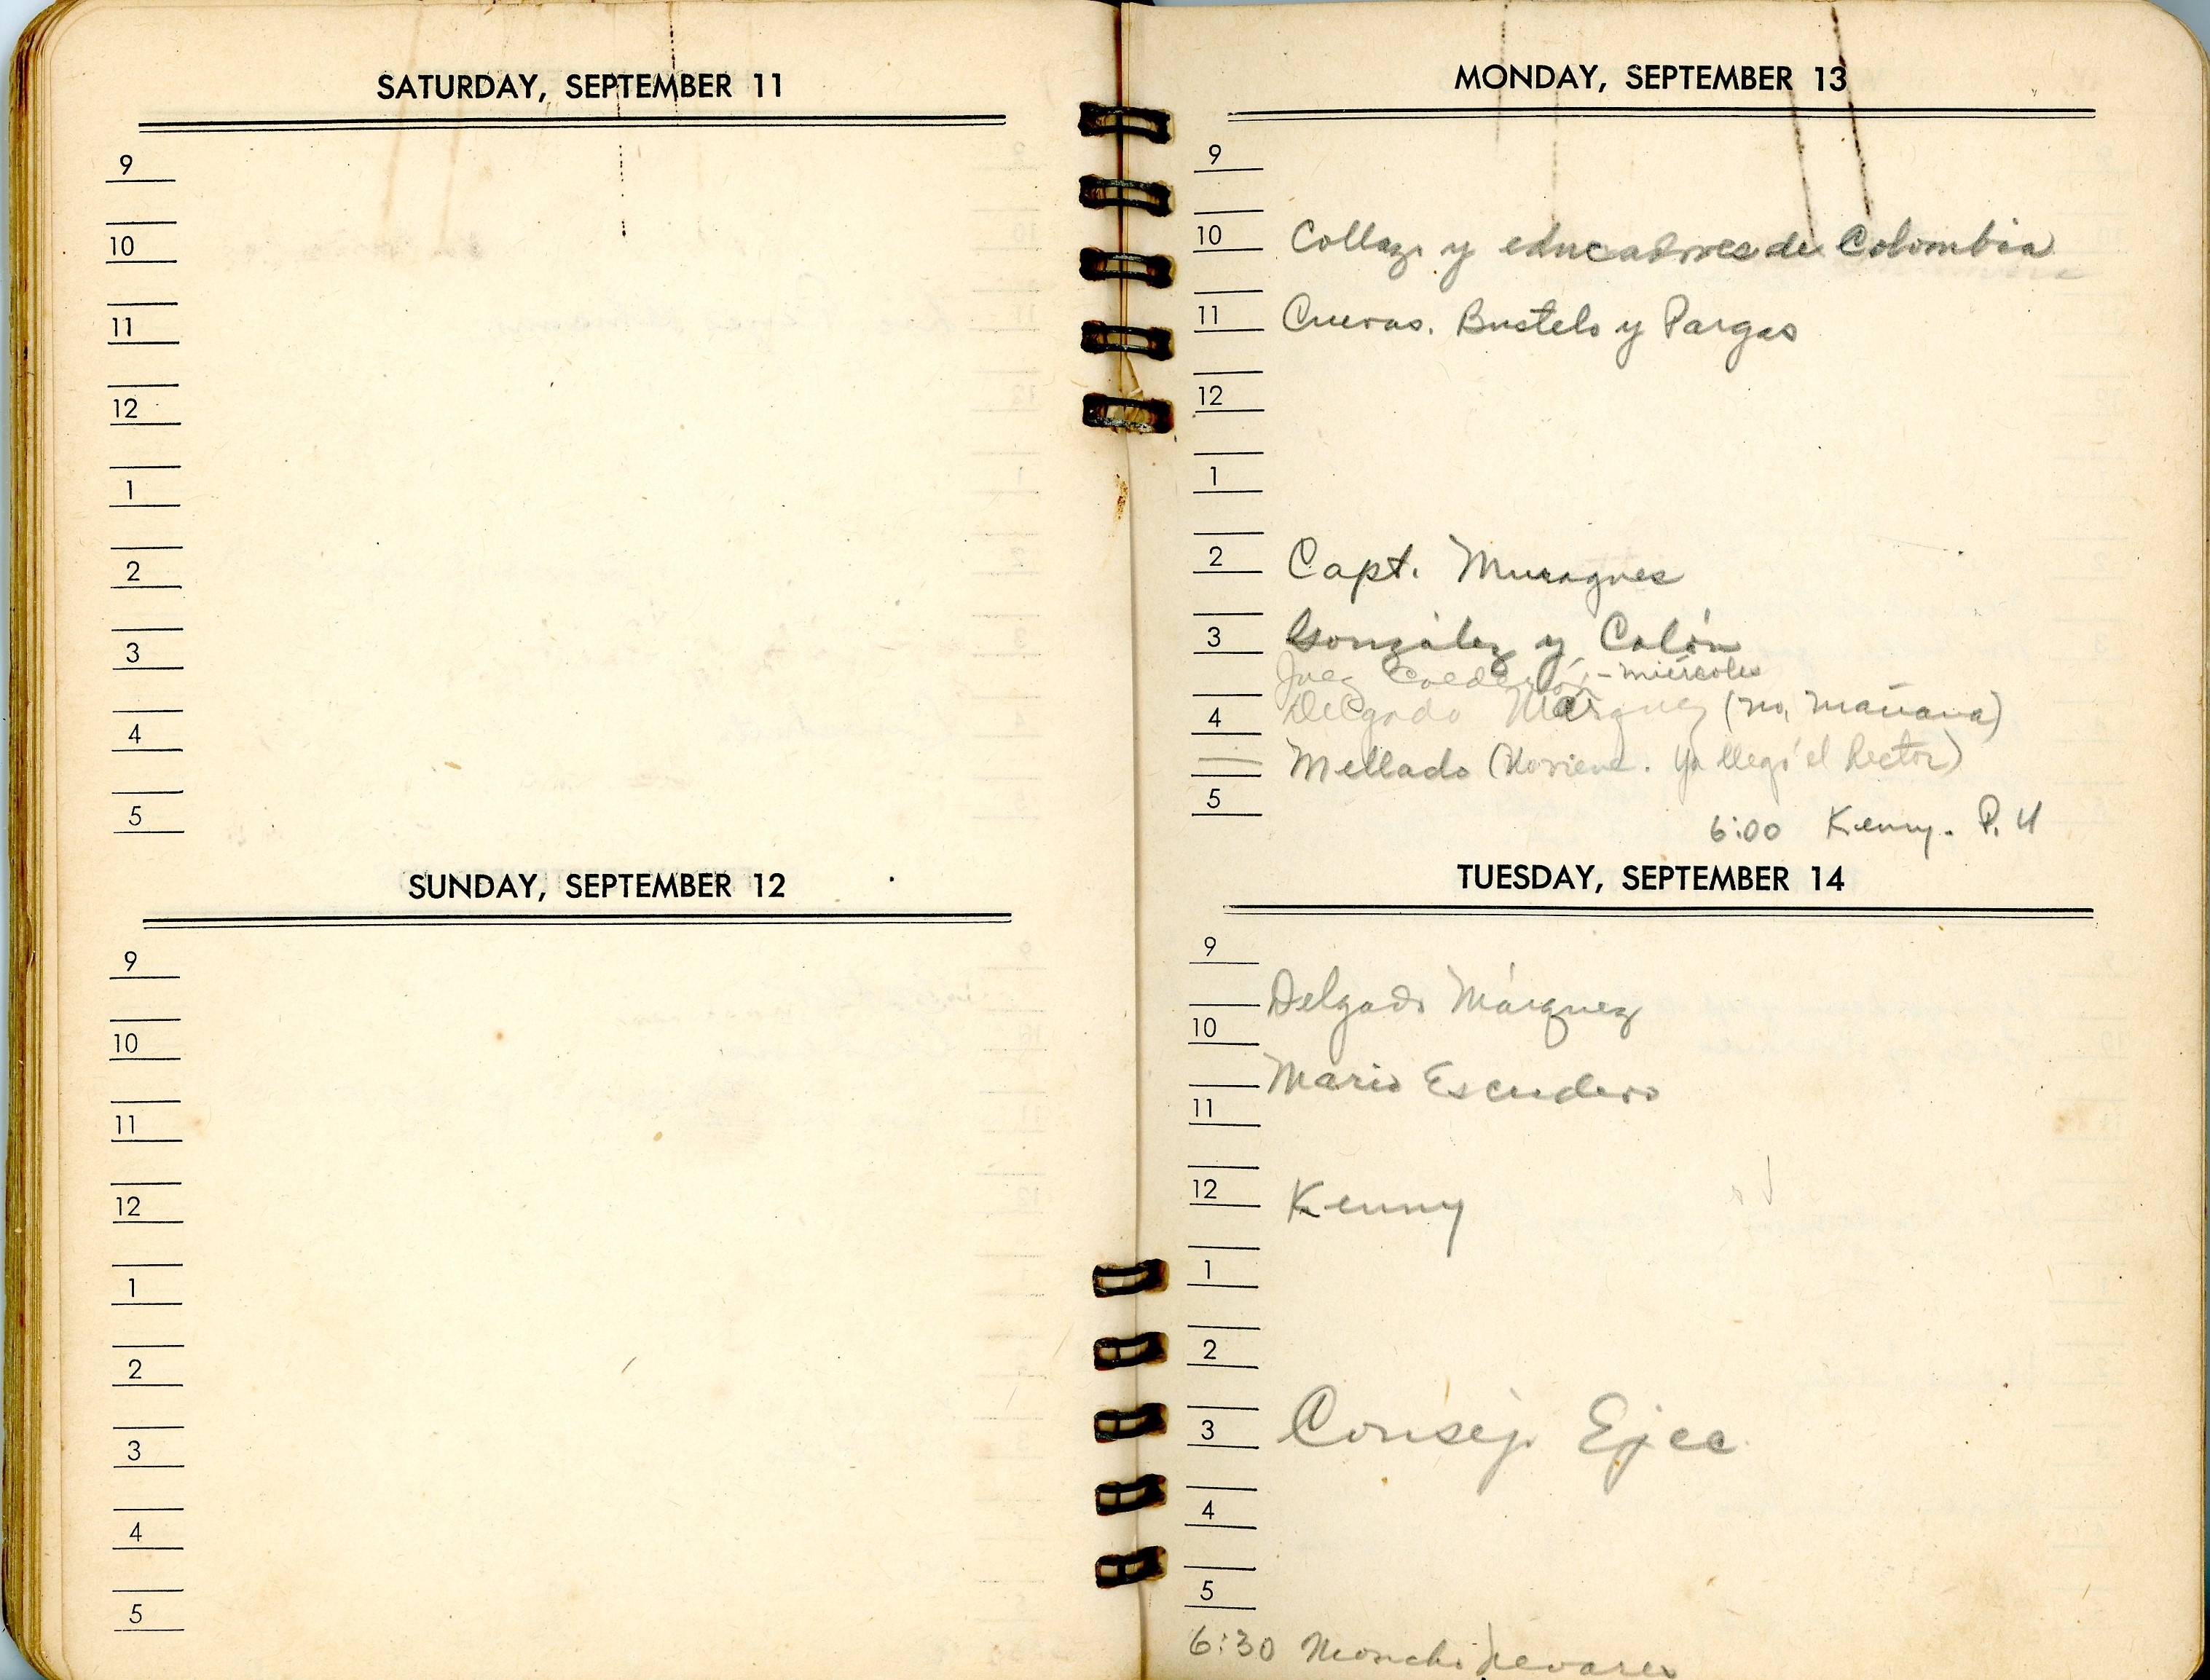 SATURDAY, SEPTEMBER 11
9
10
11
12
1
2
3
4
5
SUNDAY, SEPTEMBER 12
9
10
11
12
1
2
3
4
5
MONDAY, SEPTEMBER 13
9
10 Collazo y educadores de Colombia
11 Cuevas. Bustelo y Pargas
12
1
2 Capt. Muragnes
3 González y Colón
Juez Calderón - miércoles
4 Delgado Márquez (no, mañana)
Mellado (No viene. Ya llegó el Rector)
5
6:00 Kenny. P. U
TUESDAY, SEPTEMBER 14
9
Delgado Márquez
10
Mario Escudero
11
12 Kenny
1
2
3 Consejo Ejec
4
5
6:30 Monchi